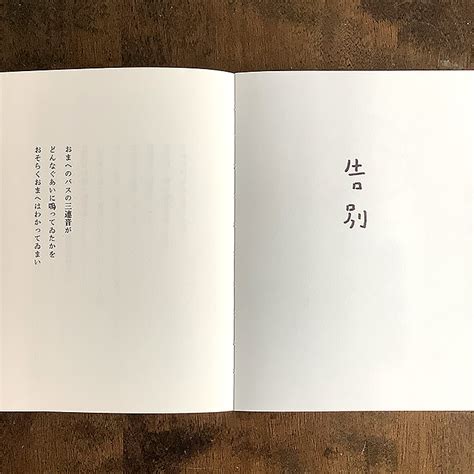 告別
おまへのバスの三連音が
どんなぐあいに鳴ってゐたかを
おそらくおまへはわかってゐまい